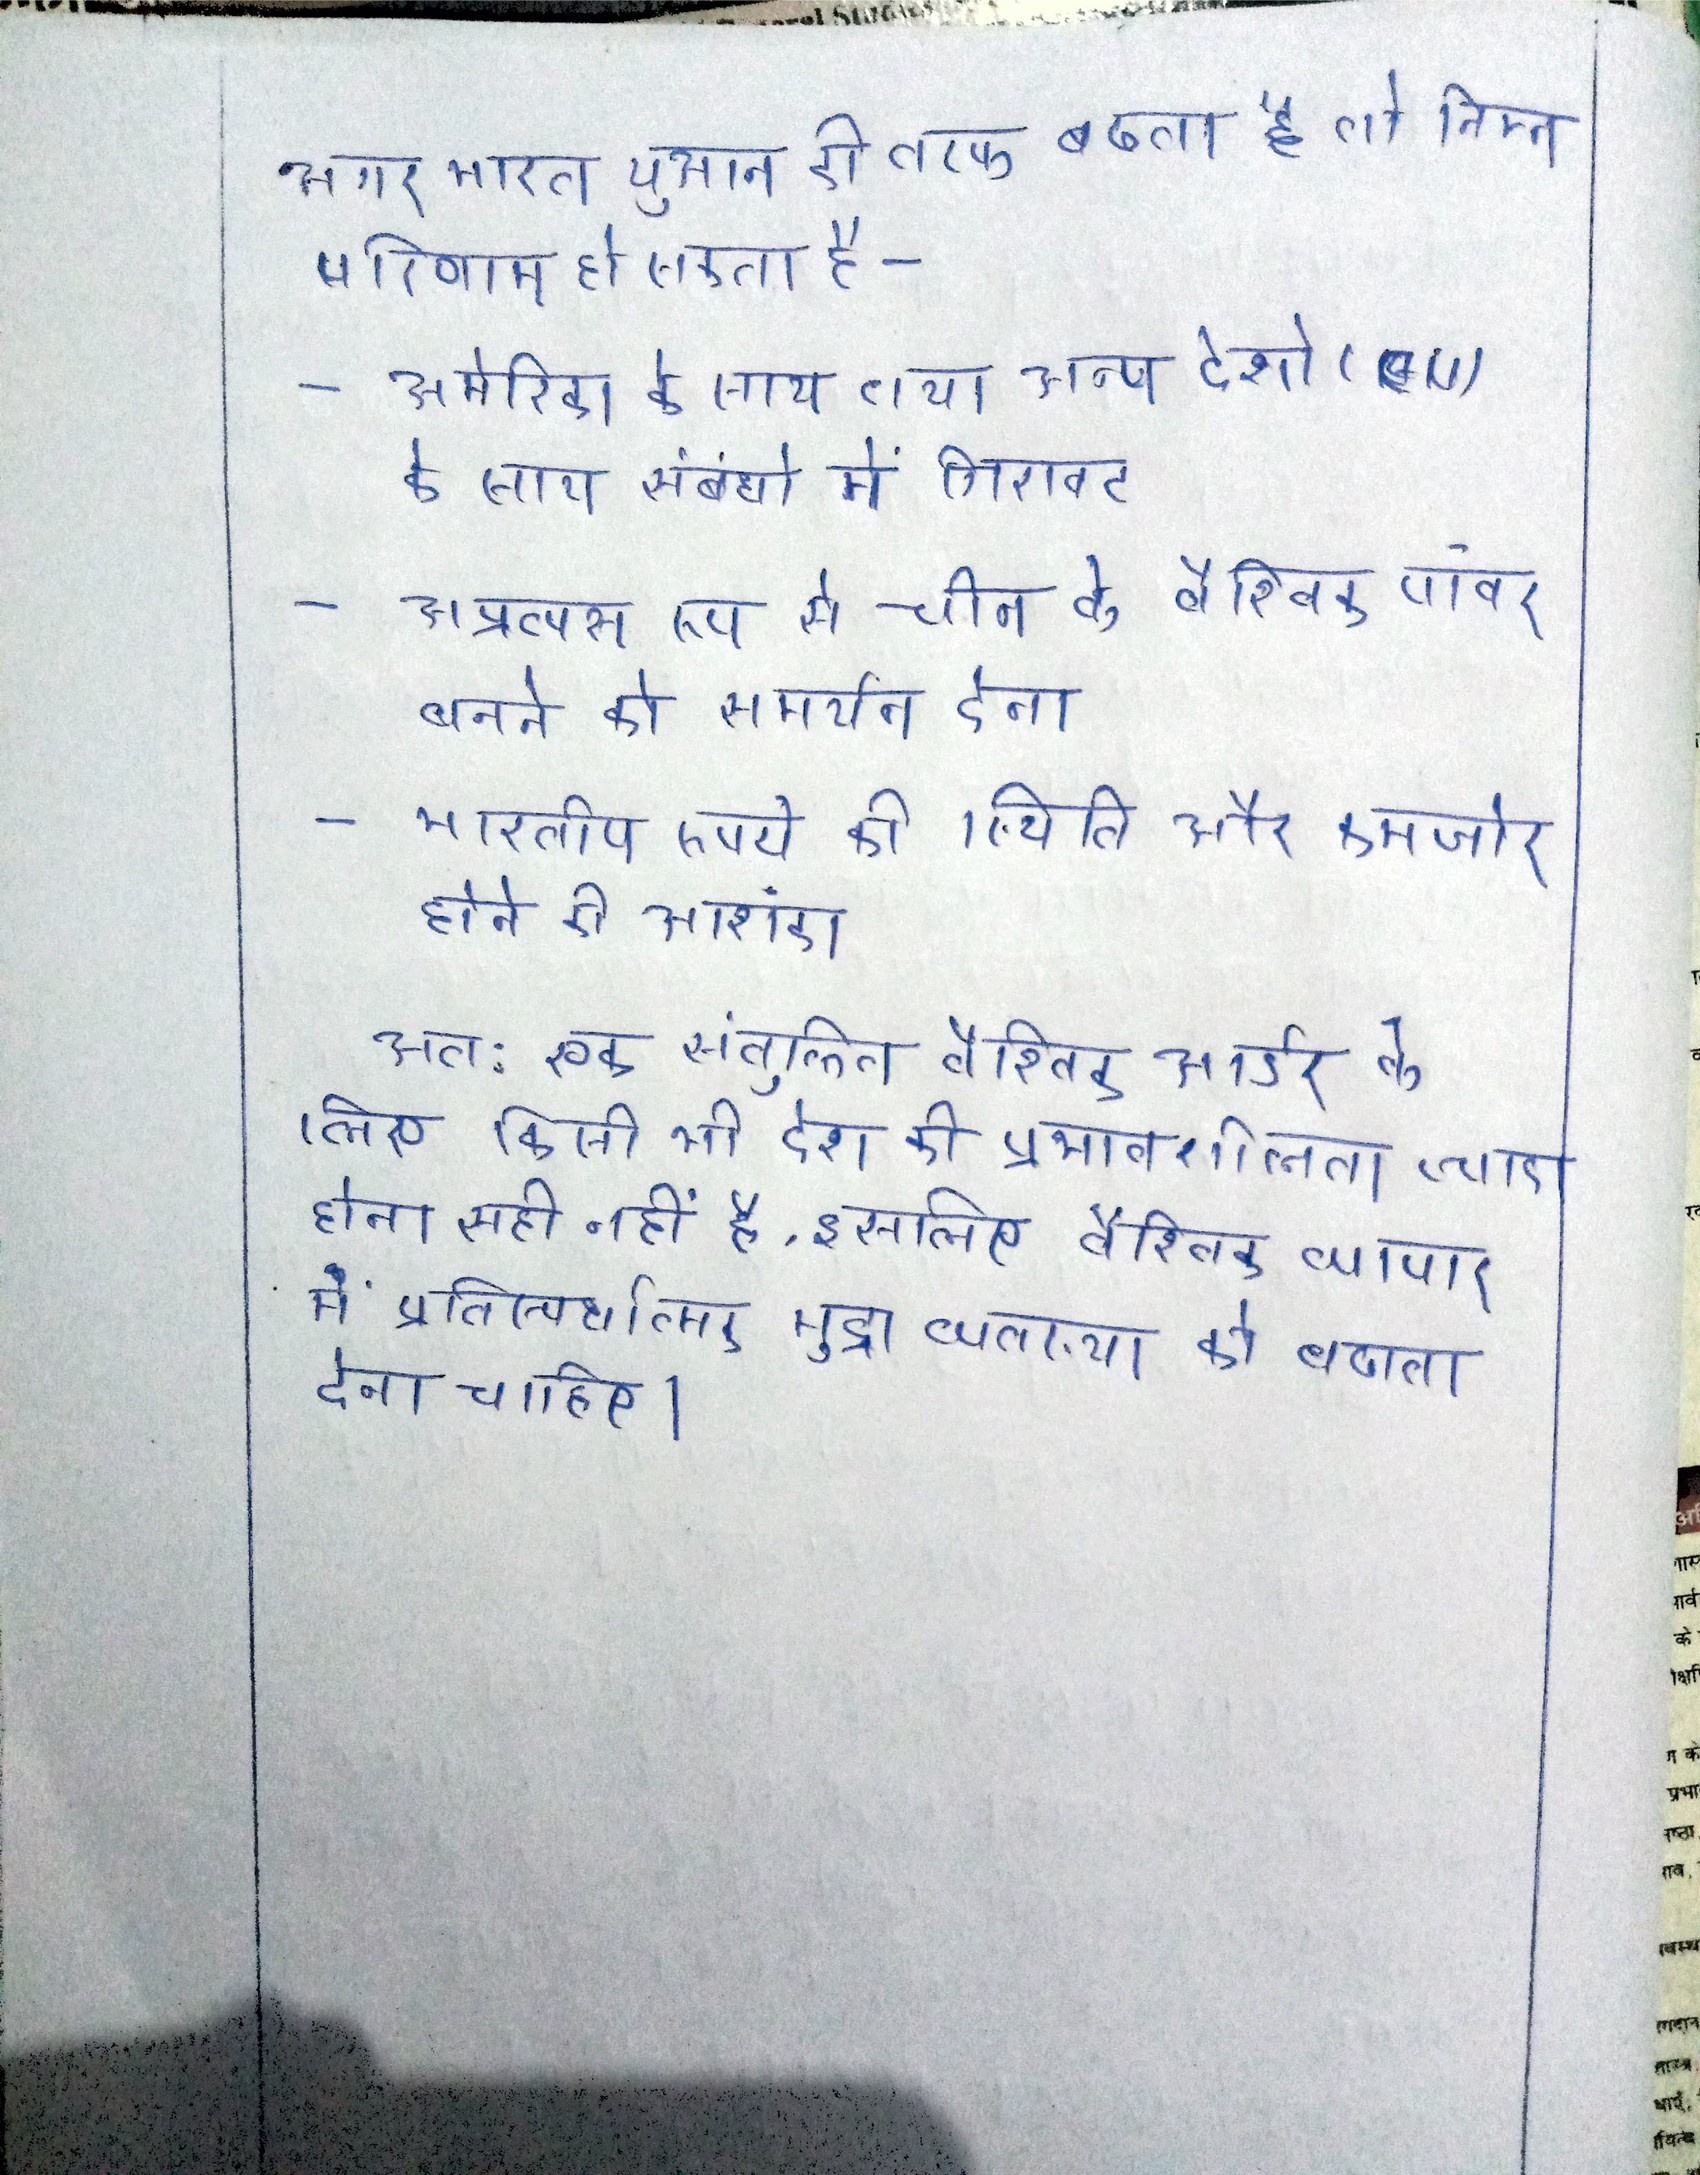 अगर भारत युआन की तरफ बढता है तो निम्न
परिणाम हो सकता है –
– अमेरिका के साथ तथा अन्य देशो (EU)
के साथ संबंधो में गिरावट
– अप्रत्यक्ष रूप से चीन के वैश्विक पांवर
बनने को समर्थन देना
– भारतीय रूपये की स्थिति और कमजोर
होने की आशंका
अतः एक संतुलित वैश्विक आर्डर के
लिए किसी भी देश की प्रभावशीलता ज्यादा
होना सही नहीं है, इसलिए वैश्विक व्यापार
में प्रतिस्पर्धात्मक मुद्रा व्यवस्था को बढावा
देना चाहिए।